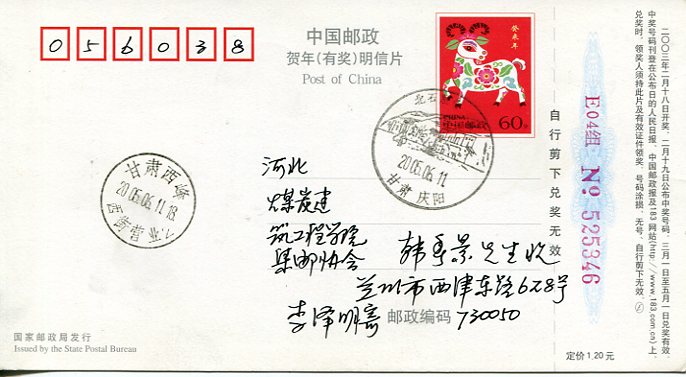 056038
中国邮政
贺年(有奖)明信片
Post of China
癸未年
CHINA
中国邮政
60分
北石
2005.06.11
甘肃 庆阳
甘肃西峰
2005.06.11.18
河北
煤炭建
筑工程学院
集邮协会 韩 景先生收
兰州市西津东路628号
李泽明寄 邮政编码 730050
国家邮政局发行
Issued by the State Postal Bureau
自行剪下兑奖无效
E04组 No 525346
定价1.20元
二○○三年二月十八日开奖,二月十九日公布中奖号码,三月一日至五月一日兑奖有效。
中奖号码刊登在公布日的人民日报、中国邮政报及183网站(http://www.183.com.cn)上。
兑奖时,领奖人须持此片及有效证件领奖。号码涂损、无号、自行剪下无效。